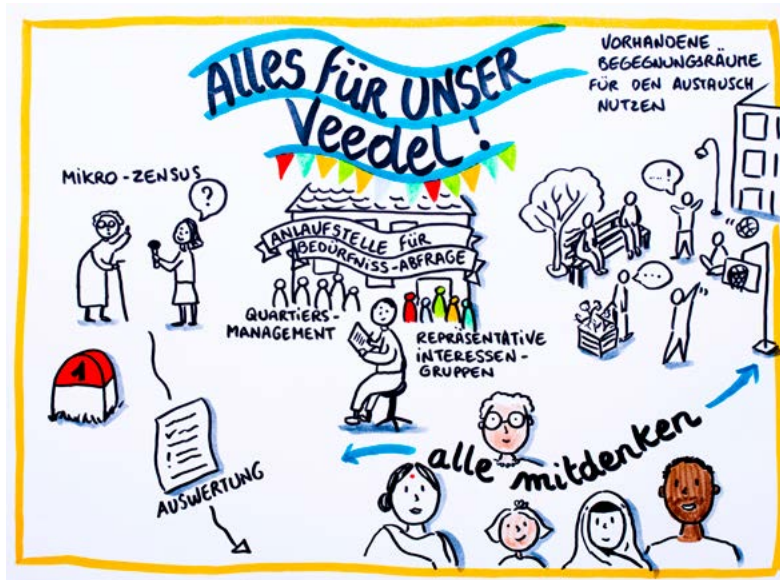 ALLES FÜR UNSER
VEEDEL!
VORHANDENE
BEGEGNUNGSRÄUME
FÜR DEN AUSTAUSCH
NUTZEN
MIKRO-ZENSUS
?
...!
ANLAUFSTELLE FÜR
BEDÜRFNISS-ABFRAGE
...
QUARTIERS-
MANAGEMENT
REPRÄSENTATIVE
INTERESSEN-
GRUPPEN
1
alle mitdenken
AUSWERTUNG